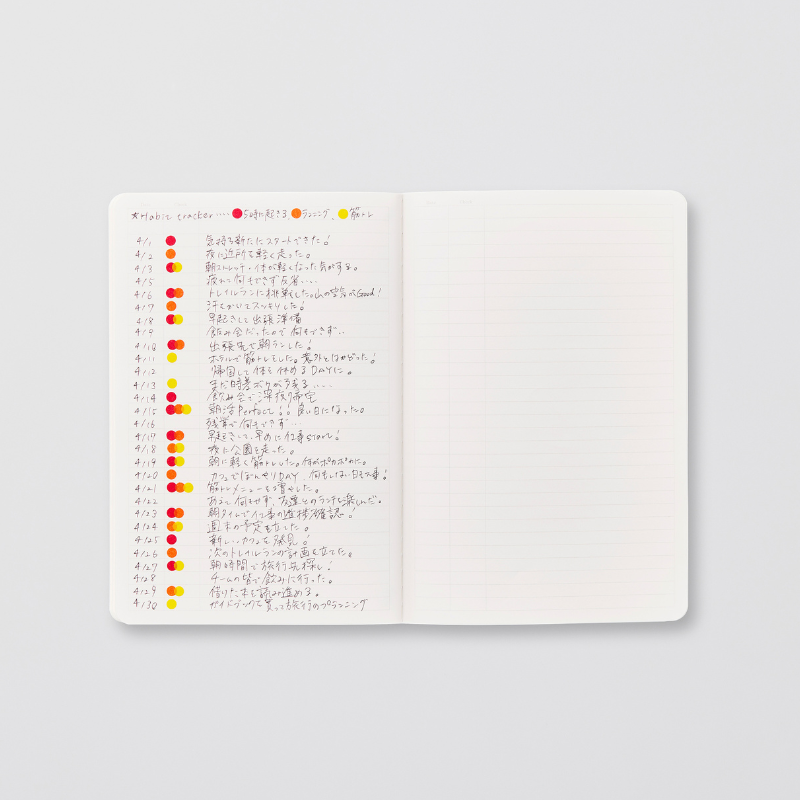 ★Habit tracker・・・・ 5時に起きる, ランニング, 筋トレ
4/1 気持ち新たにスタートできた!
4/2 夜に近所を軽く走った。
4/3 朝ストレッチ・体が軽くなった気がする。
4/5 疲れて何もできず反省‥‥
4/6 トレイルランに挑戦した。山の空気がGood!
4/7 汗をかいてスッキリした!
4/8 早起きして出張準備
4/9 飲み会だったので何もできず‥
4/10 出張先で朝ランした!
4/11 ホテルで筋トレをした。意外とはかどった!
4/12 帰国して体を休めるDAYに。
4/13 まだ時差ボケが残る‥‥
4/14 飲み会で深夜帰宅
4/15 朝活Perfect!! 良い日になった。
4/16 残業で何もできず‥
4/17 早起きして、早めに仕事start!
4/18 夜に公園を走った。
4/19 朝に軽く筋トレした。何かポカポカに。
4/20 カフェでぼんやりDAY. 何もしない日も大事!
4/21 筋トレメニューを増やした。
4/22 あえて何もせず、友達とのランチを楽しんだ。
4/23 朝タイムで仕事の進捗確認!
4/24 週末の予定を立てた。
4/25 新しいカフェを発見!
4/26 次のトレイルランの計画を立てた。
4/27 朝時間で旅行先探し!
4/28 チームの皆で飲みに行った。
4/29 借りた本を読み進める。
4/30 ガイドブックを買って旅行のプランニング